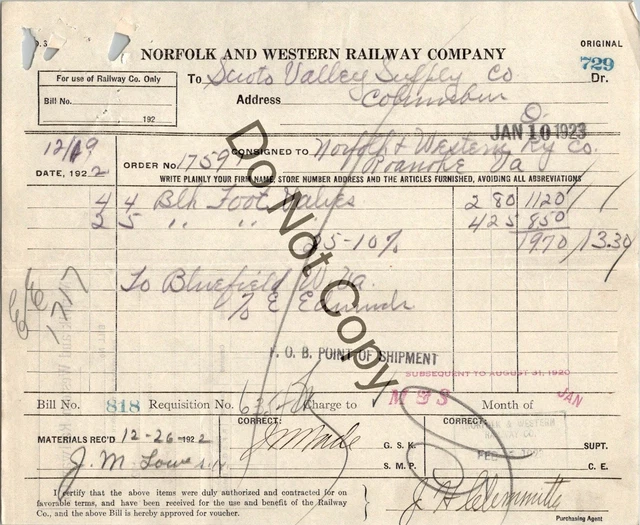 ORIGINAL
NORFOLK AND WESTERN RAILWAY COMPANY
729
For use of Railway Co. Only
To Scioto Valley Supply Co Dr.
Bill No.
Address Columbus
O.
192
JAN 10 1923
12/19
CONSIGNED TO Norfolk & Western Ry Co.
DATE, 192 2
ORDER No. 1759 Roanoke Va
WRITE PLAINLY YOUR FIRM NAME, STORE NUMBER ADDRESS AND THE ARTICLES FURNISHED, AVOIDING ALL ABBREVIATIONS
4 4 Blk Foot Valves 2 80 11 20
2 5 " " 4 25 8 50
25-10% 19 70 13.30
To Bluefield W. Va.
Do Not Copy
F. O. B. POINT OF SHIPMENT
SUBSEQUENT TO AUGUST 31, 1920
Bill No. 818 Requisition No. Charge to M & S Month of JAN
CORRECT: CORRECT:
NORFOLK & WESTERN
RAILWAY CO.
MATERIALS REC'D 12-26-192 2
G. S. K. SUPT.
J. M. Lowe
S. M. P. C. E.
I certify that the above items were duly authorized and contracted for on
favorable terms, and have been received for the use and benefit of the Railway
Co., and the above Bill is hereby approved for voucher.
Purchasing Agent